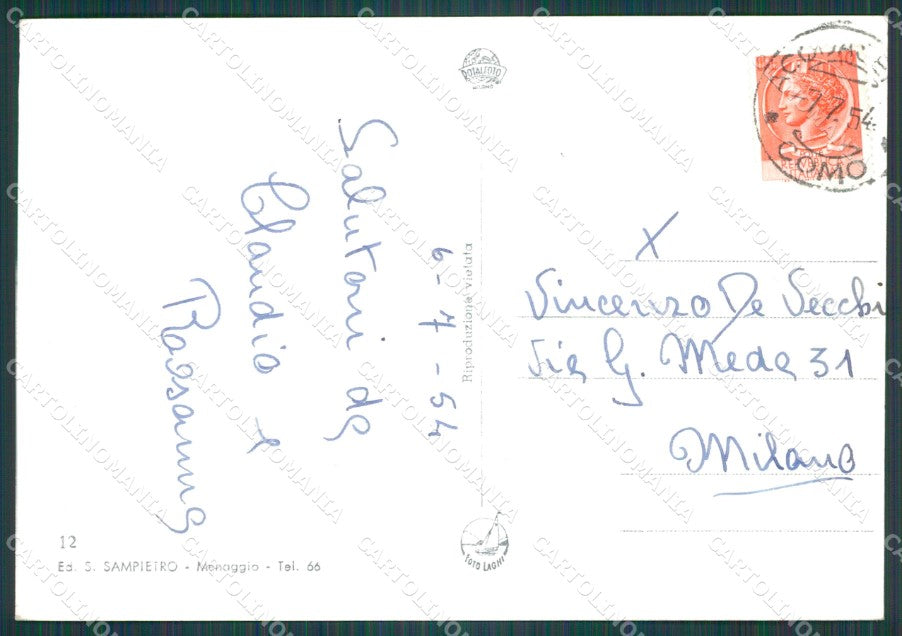 TOTALFOTO
MILANO
COMO
7.7.54
6-7-54
Saluti da
Claudio e
Rossanna
Riproduzione vietata
X
Vincenzo De Vecchi
Via G. Meda 31
Milano
FOTO LAGHI
12
Ed. S. SAMPIETRO - Menaggio - Tel. 66
CARTOLINOMANIA